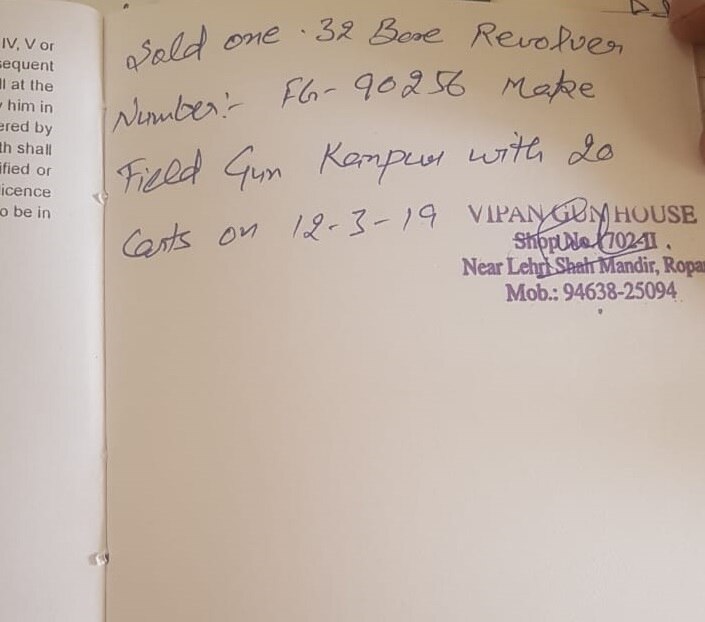 IV, V or
sequent
ll at the
him in
ered by
th shall
ified or
licence
o be in
Sold one .32 Bore Revolver
Number:- FG-90256 Make
Field Gun Kanpur with 20
Carts on 12-3-19
VIPAN GUN HOUSE
Shop No. 1702-II.
Near Lehri Shah Mandir, Ropa
Mob.: 94638-25094